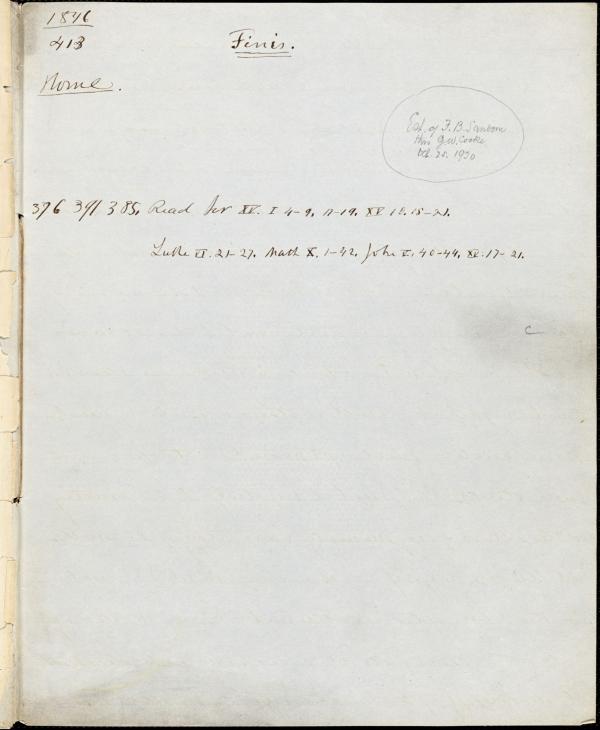 1846
413
Finis.
Home.
Est. of F. B. Sanborn
thro G. W. Cooke
Feb. 25. 1930
376 391 385. Read Jer XV. I 4-9, 17-19. XV 10. 15-21.
Luke VI. 21-27. Math X. 1-42. John V. 40-44. XV. 17-21.
C